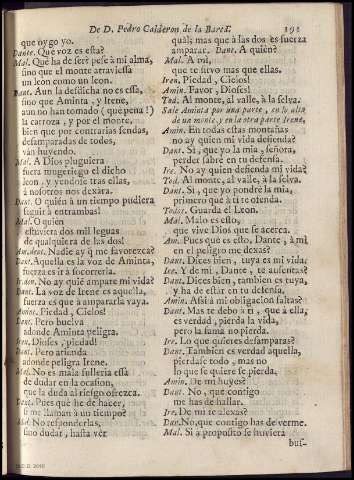 De D. Pedro Calderon de la Barca.
que oygo yo.
Dante. Que voz es esta?
Mal. Que ha de ser? pese à mi alma,
sino que el monte atraviessa
un leon como un leon.
Dant. Aun la desdicha no es essa,
sino que Aminta, y Irene,
aun no han tomado (què pena!)
la carroza, y por el monte,
bien que por contrarias sendas,
desamparadas de todos,
van huyendo.
Mal. A Dios pluguiera
fuera mugeriego el dicho
leon, y yendose tras ellas,
à nosotros nos dexàra.
Dant. O quièn à un tiempo pudiera
seguir à entrambas!
Mal. O quièn
estuviera dos mil leguas
de qualquiera de las dos!
Am.dent. Nadie ay q̃ me favorezca?
Dant. Aquella es la voz de Aminta,
fuerza es ir à socorrerla.
Ir.den. No ay quiē ampare mi vida?
Dant. La voz de Irene es aquella,
fuerza es que à ampararla vaya.
Amint. Piedad, Cielos!
Dant. Pero buelva
adonde Aminta peligra.
Iren. Dioses, piedad!
Dant. Pero atienda
adonde peligra Irene.
Mal. No es mala fulleria essa
de dudar en la ocasion,
que la duda al riesgo ofrezca.
Dant. Pues què he de hacer,
si me llaman à un tiempo?
Mal. No responderlas,
sino dudar, hasta vèr
qual; mas que à las dos es fuerza
amparar. Dant. A quièn?
Mal. A mi,
que te sirvo mas que ellas.
Iren. Piedad, Cielos!
Amin. Favor, Dioses!
Tod. Al monte, al valle, à la selva.
Sale Aminta por una parte, en lo alto
de un monte, y en la otra parte Irene.
Amin. En todas estas montañas
no ay quien mi vida defienda?
Dant. Si, que yo la mia, señora,
perder sabrè en tu defensa.
Ire. No ay quien defienda mi vida?
Tod. Al monte, al valle, à la selva.
Dant. Si, que yo pondrè la mia,
primero que à ti te ofenda.
Todos. Guarda el Leon.
Mal. Malo es esto,
que vive Dios que se acerca.
Am. Pues què es esto, Dante, à mi
en el peligro me dexas?
Dant. Dices bien, tuya es mi vida.
Ire. Y de mi, Dante, te ausentas?
Dant. Dices bien, tambien es tuya,
y ha de estàr en tu defensa.
Amin. Assi à mi obligacion faltas?
Dant. Mas te debo à ti, que à ella,
es verdad, pierda la vida,
pero la fama no pierda.
Ire. Lo que quieres desamparas?
Dant. Tambien es verdad aquella,
pierdase todo, mas no
lo que se quiere se pierda.
Amin. De mi huyes?
Dant. No, que contigo
me has de hallar.
Ire. De mi te alexas?
Dan. No, que contigo has de verme.
Mal. Si à proposito se huviera
bus-